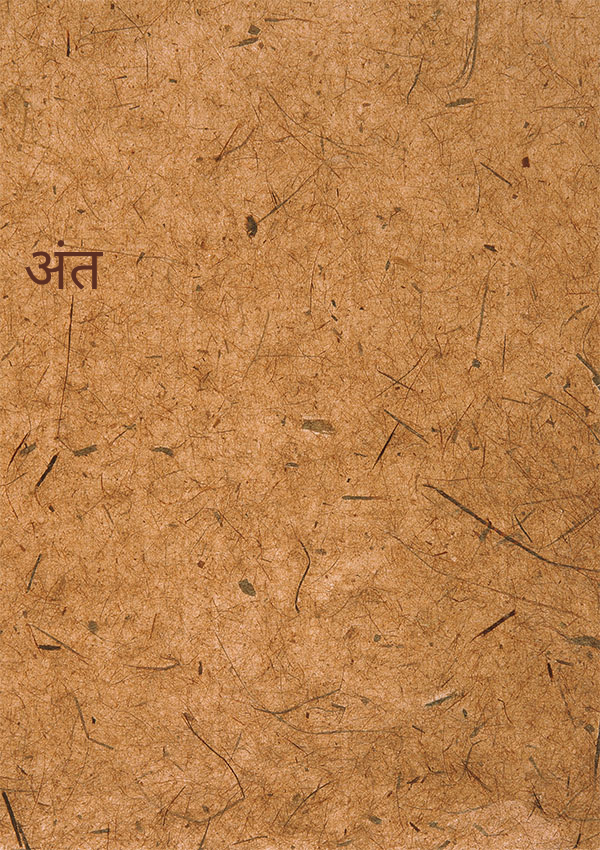 अंत